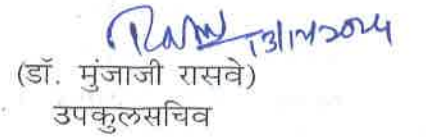 13/12/2024
(डॉ. मुंजाजी रासवे)
उपकुलसचिव